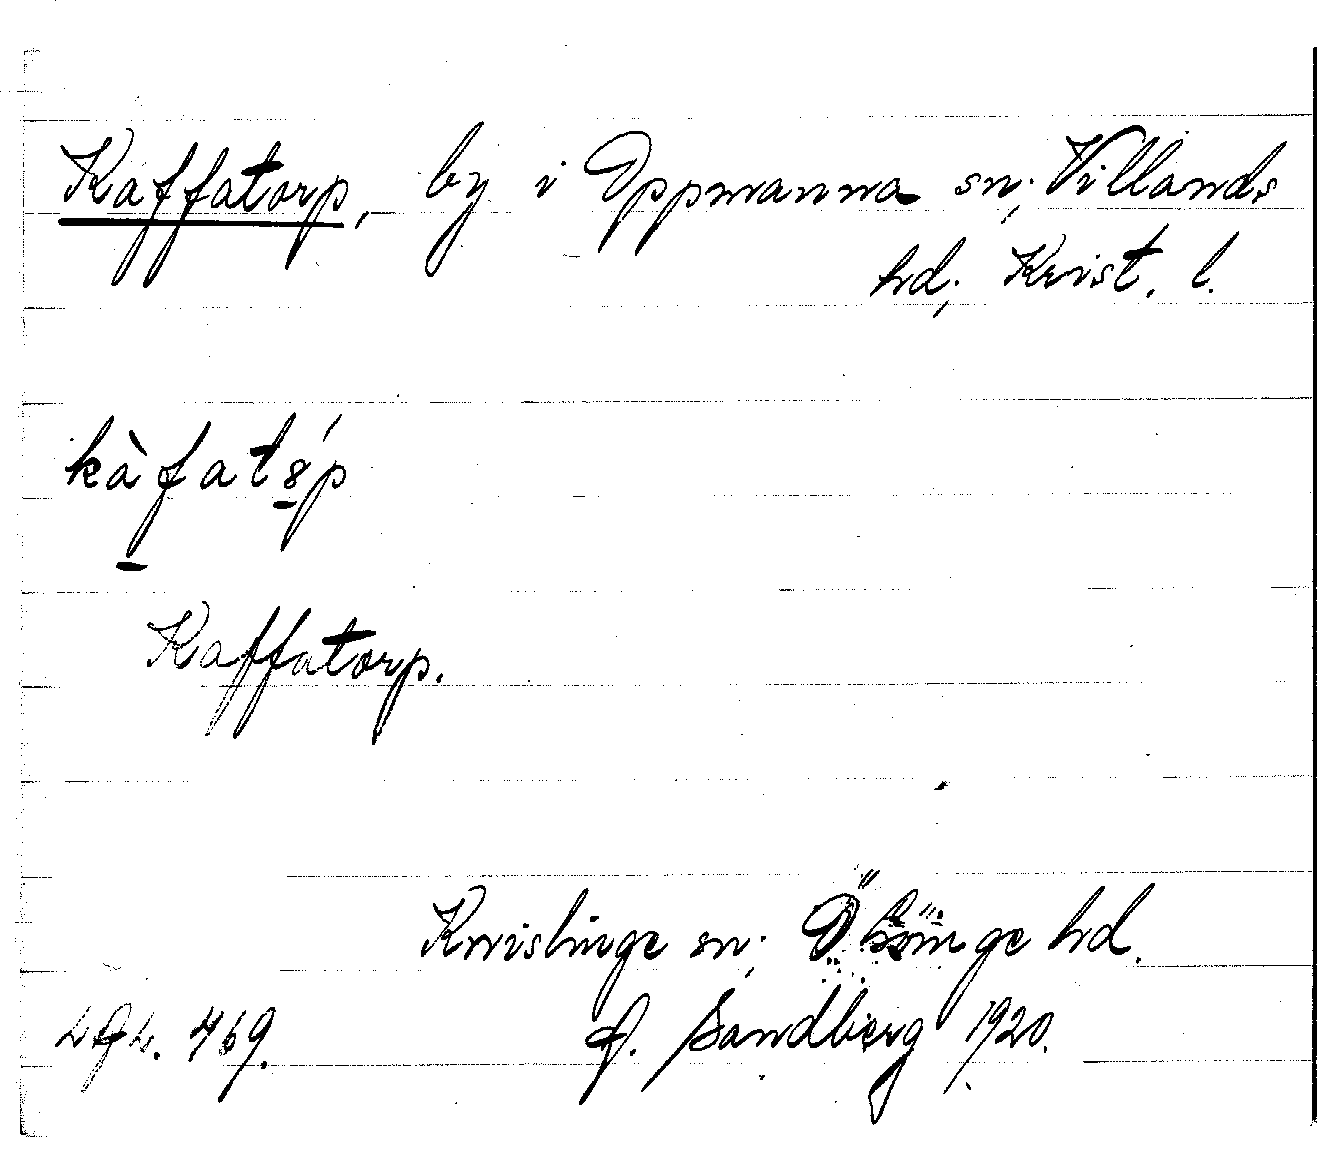 Kaffatorp, by i Oppmanna sn; Villands
hd; Krist. l.
kàfatśp
Kaffatorp.
Knislinge sn; Ö Göinge hd.
469. F. Sandberg 1920.